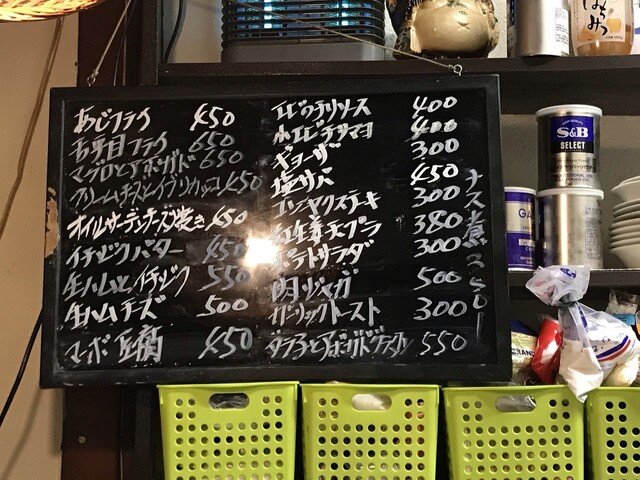 あじフライ 450
五目フライ 650
マグロとアボガド 650
クリームチーズとイブリガッコ 450
オイルサーデンチーズ焼き 450
イチジクバター 450
生ハムとイチジク 550
生ハムチーズ 500
マーボ豆腐 450
エビのチリソース 400
小エビチリマヨ 400
ギョーザ 300
塩サバ 450
コンニャクステーキ 300
紅生姜天プラ 380
ポテトサラダ 300
肉ジャガ 500
ガーリックトースト 300
タラコとアボガド 550
ナス煮 350
はちみつ
S&B
SELECT